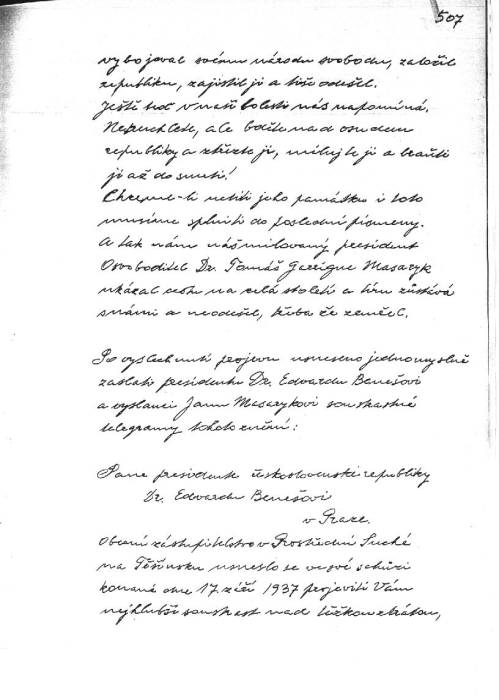 507
vybojoval svému národu svobodu, založil
republiku, zajistil ji a tiše odešel.
Ještě teď v naší bolesti nás napomíná.
Netruchlete, ale bděte nad osudem
republiky a střezte ji, milujte ji a braňte
ji až do smrti!
Chceme-li uctíti jeho památku i toto
musíme splniti do poslední písmeny.
A tak nám náš milovaný president
Osvoboditel Dr. Tomáš Garrigue Masaryk
ukázal cestu na celá století a tím zůstává
s námi a neodešel, třeba že zemřel.
Po vyslechnutí projevu usneseno jednomyslně
zaslati presidentu Dr. Edvardu Benešovi
a vyslanci Janu Masarykovi soustrastné
telegramy tohoto znění:
Pane presidente československé republiky
Dr. Edvardu Benešovi
v Praze.
Obecní zastupitelstvo v Prostřední Suché
na Těšínsku usneslo se ve své schůzi
konané dne 17. září 1937 projeviti Vám
nejhlubší soustrast nad těžkou ztrátou,